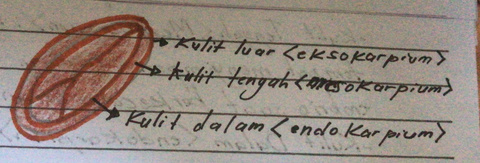 Kulit luar <eksokarpium>
Kulit tengah <mesokarpium>
Kulit dalam <endokarpium>